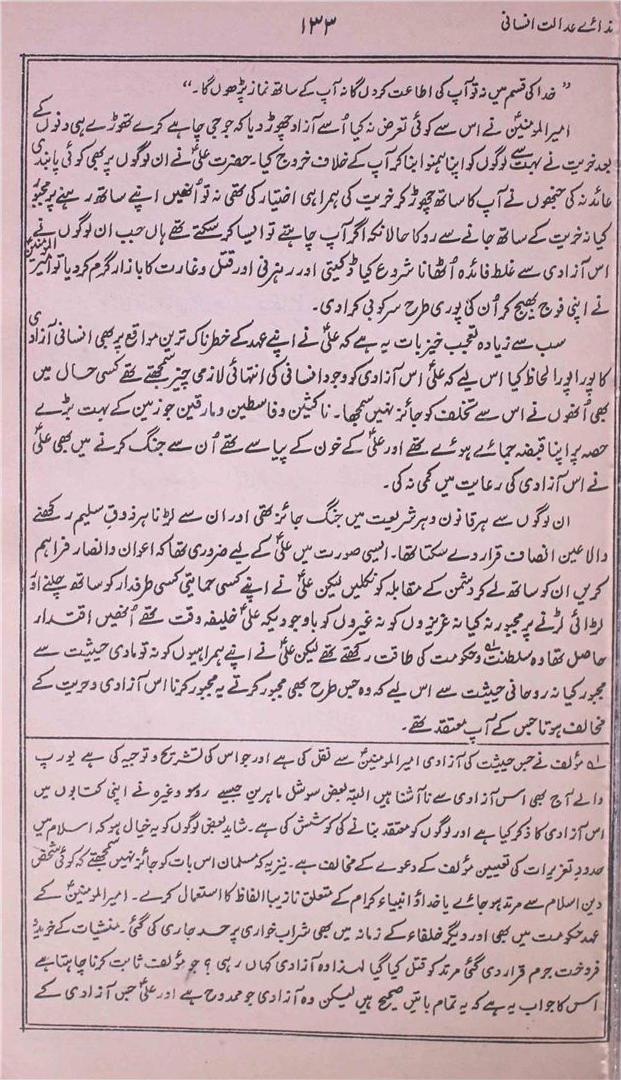 ندائے عدالت انسانی
۱۳۳
” خدا کی قسم میں نہ تو آپ کی اطاعت کروں گا نہ آپ کے ساتھ نماز پڑھوں گا۔“
امیرالمومنینؑ نے اس سے کوئی تعرض نہ کیا اُسے آزاد چھوڑ دیا کہ جو جی چاہے کرے تھوڑے ہی دنوں کے
بعد خریت نے بہت سے لوگوں کو اپنا ہمنوا بنا کر آپ کے خلاف خروج کیا۔ حضرت علیؑ نے ان لوگوں پر بھی کوئی پابندی
عائد نہ کی جنھوں نے آپ کا ساتھ چھوڑ کر خریت کی ہمراہی اختیار کی تھی نہ تو انھیں اپنے ساتھ رہنے پر مجبور
کیا نہ خریت کے ساتھ جانے سے روکا حالانکہ اگر آپ چاہتے تو ایسا کر سکتے تھے ہاں جب ان لوگوں نے
اس آزادی سے غلط فائدہ اُٹھانا شروع کیا ڈکیتی اور رہزنی اور قتل و غارت کا بازار گرم کر دیا تو امیرالمومنینؑ
نے اپنی فوج بھیج کر اُن کی پوری طرح سرکوبی کرادی۔
سب سے زیادہ تعجب خیز بات یہ ہے کہ علیؑ نے اپنے عہد کے خطرناک ترین مواقع پر بھی انسانی آزادی
کا پورا پورا لحاظ کیا اس لیے کہ علیؑ اس آزادی کو وجود انسانی کی انتہائی لازمی چیز سمجھتے تھے کسی حال میں
بھی اُنھوں نے اس سے تخلف کو جائز نہیں سمجھا۔ ناکثین و قاسطین و مارقین جو زمین کے بہت بڑے
حصہ پر اپنا قبضہ جمائے ہوئے تھے اور علیؑ کے خون کے پیاسے تھے اُن سے جنگ کرنے میں بھی علیؑ
نے اس آزادی کی رعایت میں کمی نہ کی۔
ان لوگوں سے ہر قانون و ہر شریعت میں جنگ جائز تھی اور ان سے لڑنا ہر ذوق سلیم رکھنے
والا عین انصاف قرار دے سکتا تھا۔ ایسی صورت میں علیؑ کے لیے ضروری تھا کہ اعوان و انصار فراہم
کریں ان کو ساتھ لے کر دشمن کے مقابلہ کو نکلیں لیکن علیؑ نے اپنے کسی حمایتی کسی طرفدار کو ساتھ چلنے اور
لڑائی لڑنے پر مجبور نہ کیا نہ عزیزوں کو نہ غیروں کو باوجودیکہ علیؑ خلیفہ وقت تھے اُنھیں اقتدار
حاصل تھا وہ سلطنت و حکومت کی طاقت رکھتے تھے لیکن علیؑ نے اپنے ہمراہیوں کو نہ تو مادی حیثیت سے
مجبور کیا نہ روحانی حیثیت سے اس لیے کہ وہ جس طرح بھی مجبور کرتے یہ مجبور کرنا اس آزادی و حریت کے
مخالف ہوتا جس کے آپ معتقد تھے۔
؎ مؤلف نے جس حیثیت کی آزادی امیرالمومنینؑ سے نقل کی ہے اور جو اس کی تشریح و توجیہ کی ہے یورپ
والے آج بھی اس آزادی سے نا آشنا ہیں البتہ بعض سوشل ماہرین جیسے روسو وغیرہ نے اپنی کتابوں میں
اس آزادی کا ذکر کیا ہے اور لوگوں کو معتقد بنانے کی کوشش کی ہے۔ شاید بعض لوگوں کو یہ خیال ہو کہ اسلام میں
حدود تعزیرات کی تعیین مؤلف کے دعوے کے مخالف ہے۔ نیز یہ کہ مسلمان اس بات کو جائز نہیں سمجھتے کہ کوئی شخص
دین اسلام سے مرتد ہو جائے یا خدا و انبیاء کرام کے متعلق نازیبا الفاظ کا استعمال کرے۔ امیرالمومنینؑ کے
عہد حکومت میں بھی اور دیگر خلفاء کے زمانہ میں بھی شراب خواری پر حد جاری کی گئی۔ منشیات کے خرید و
فروخت جرم قرار دی گئی مرتد کو قتل کیا گیا لہٰذا وہ آزادی کہاں رہی؟ جو مؤلف ثابت کرنا چاہتا ہے
اس کا جواب یہ ہے کہ یہ تمام باتیں صحیح ہیں لیکن وہ آزادی جو ممدوح ہے اور علیؑ جس آزادی کے